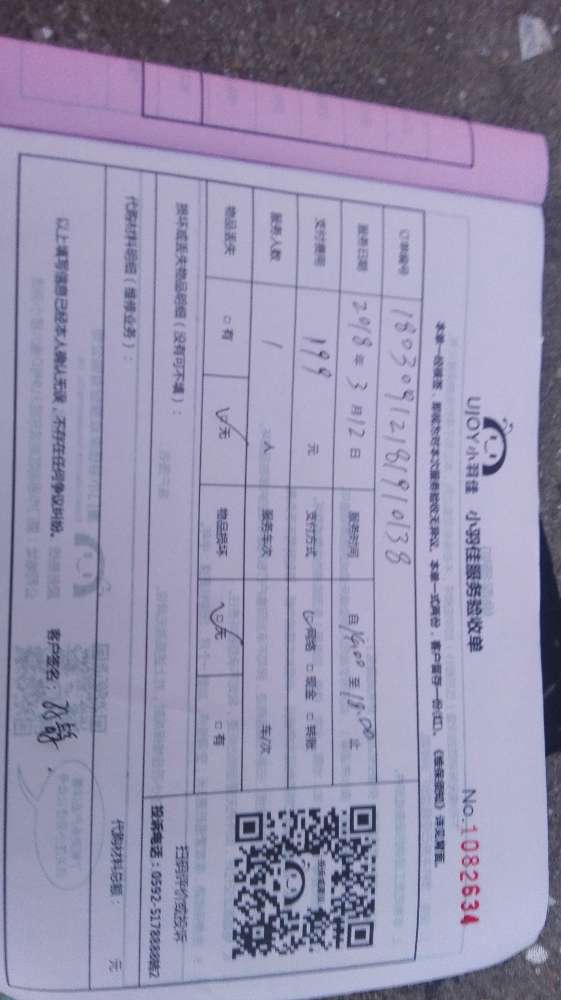 UJOY小羽佳 小羽佳服务验收单
No.1082634
本单一经签签，即视为对本次服务验收无异议。本单一式两份，客户留存一份(红)。《维保须知》详见背面。
订单编号 18030912181910138
服务日期 2018年3月12日 服务时间 自16:00至18:00止
支付费用 199 元 支付方式 ☑网络 □现金 □转账
服务人数 1 人 服务车次 车/次
物品丢失 □有 ☑无 物品损坏 ☑无 □有
损坏或丢失物品明细（没有可不填）：
扫码评价或投诉
投诉电话：0592-5178888转2
代购材料明细（维修业务）：
代购材料总额： 元
以上填写信息已经本人确认无误，不存在任何争议纠纷。 客户签名：